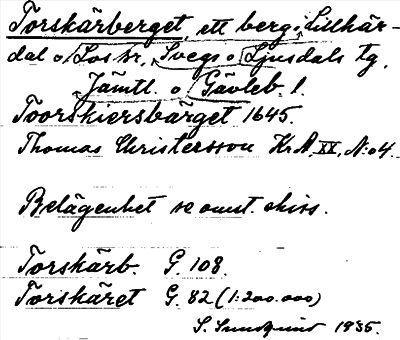 Torskärberget, ett berg i Lillhär-
dal o Los sr, Svegs o Ljusdals tg,
Jämtl. o Gävleb. l.
Toorskiersbärget 1645.
Thomas Christersson Kr A, XX, N:o 4.
Belägenhet se omst. skiss.
Torskärb. G. 108.
Torskäret G. 82 (1:200.000)
S. Sundquist 1935.